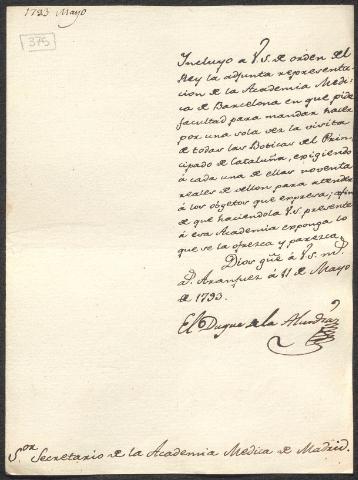 1793 Mayo
375
Incluyo a V.S. de orden del
Rey la adjunta representa-
cion de la Academia Medi-
ca de Barcelona en que pide
facultad para mandar hacer
por una sola vez la visita
de todas las Boticas del Prin-
cipado de Cataluña, exigiendo
á cada una de ellas noventa
reales de vellon para atender
á los objetos que expresa; á fin
de que haciendola V.S. presente
á esa Academia exponga lo
que se la ofrezca y parezca.
Dios gũe á V.S. m.s
a.s Aranjuez á 11 de Mayo
de 1793.
El Duque de la Alcudia
S.or Secretario de la Academia Medica de Madrid.